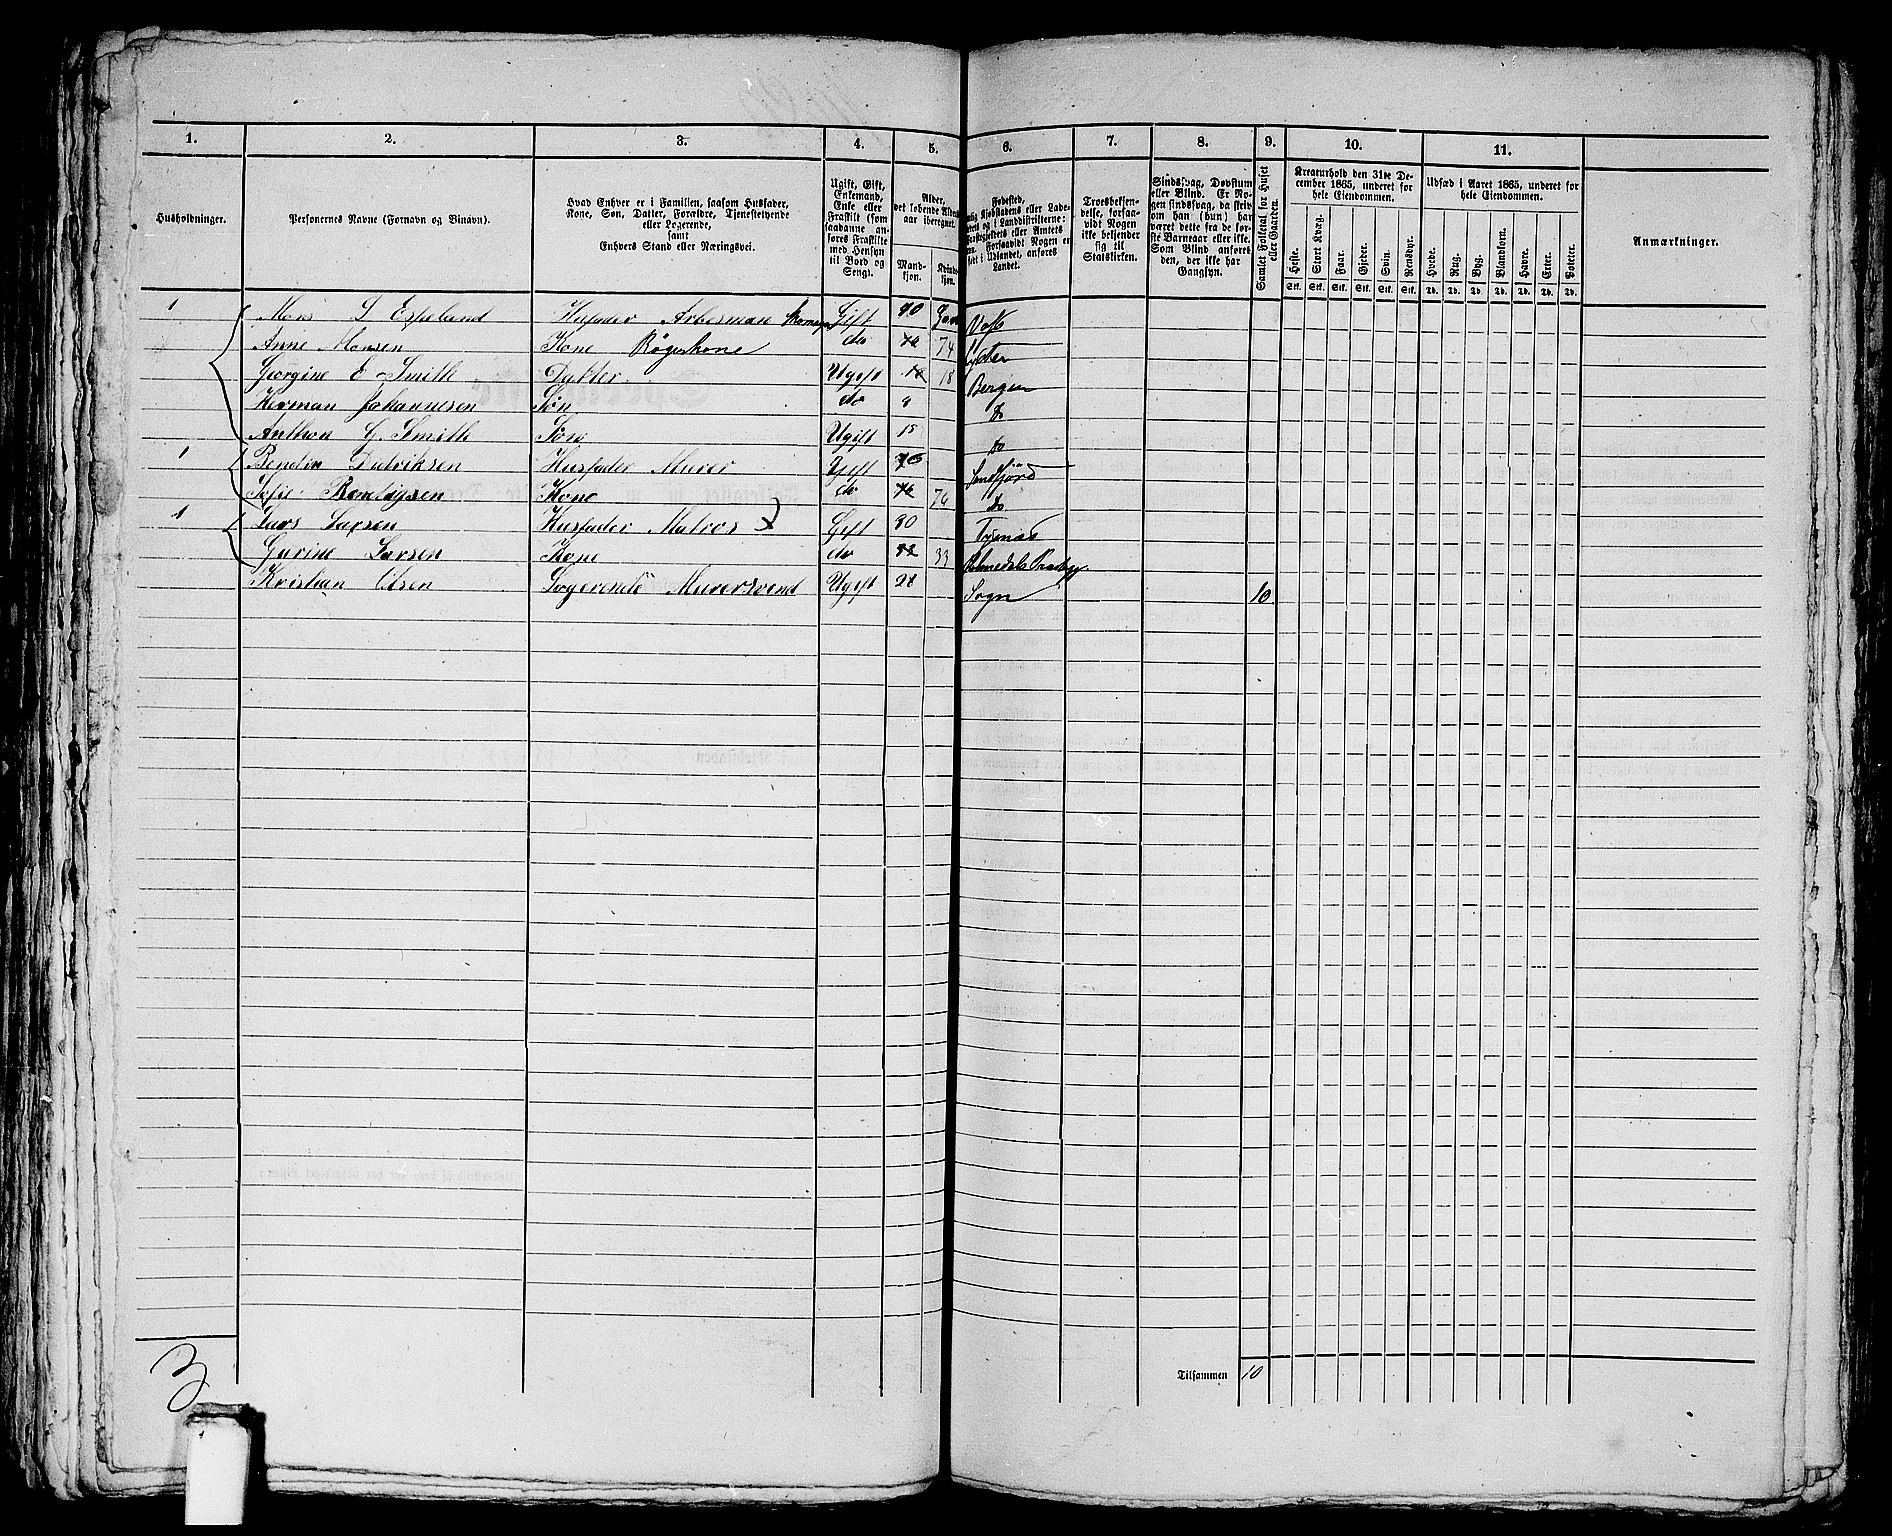 1. 2. 3. 4. 5. 6. 7. 8. 9. 10. 11.
Husholdninger.
Personernes Navne (Fornavn og Vinavn).
Hvad Enhver er i Familien, saasom Husfader, Kone, Søn, Datter, Forældre, Tjenestetyende eller Logerende, samt Enhvers Stand eller Næringsvei.
Ugift, Gift, Enkemand, Enke eller Fraskilt (som saadanne anføres Fraskilte med Hensyn til Bord og Seng).
Alder, det løbende Alders aar iberegnet.
Mandkjøn. Kvindekjøn.
Fødested,
Troesbekjendelse, forsaavidt Nogen ikke bekjender sig til Statskirken.
Sindssvag, Døvstum eller Blind. Er Nogen sindssvag, da skrives om han (hun) har været dette fra de første Barneaar eller ikke. Som Blind anføres den, der ikke har Gangsyn.
Samlet Folketal for Huset eller Gaarden.
Kreaturhold den 31te December 1865, underet for hele Eiendommen.
Heste. Stort Kvæg. Faar. Gjeder. Svin. Rensdyr.
Udsæd i Aaret 1865, underet for hele Eiendommen.
Hvede. Rug. Byg. Blandkorn. Havre. Erter. Poteter.
Stk. Stk. Stk. Stk. Stk. Stk. Td. Td. Td. Td. Td. Td. Td.
Anmærkninger.
1 Mons Espeland Husfader Arbesman Gift Vos
Anne Monsen Kone do 74
Georgine E Smith Datter Ugift 18 Bergen
Herman Johannesen Søn do do
Anthon G. Smith Søn Ugift 15 do
1 Bendix Didriksen Husfader Murer Gift Søndfjord
Sofie Kone do do
1 Lars Larsen Husfader Matros Gift 30 Tysnæs
Gurine Larsen Kone do 33
Kristian Olsen Logerende Murersvend Ugift 28 Sogn 10
Tilsammen 10
3